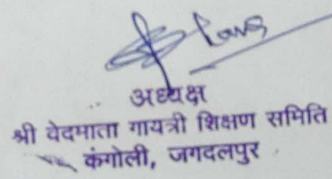 अध्यक्ष
श्री वेदमाता गायत्री शिक्षण समिति
कंगोली, जगदलपुर